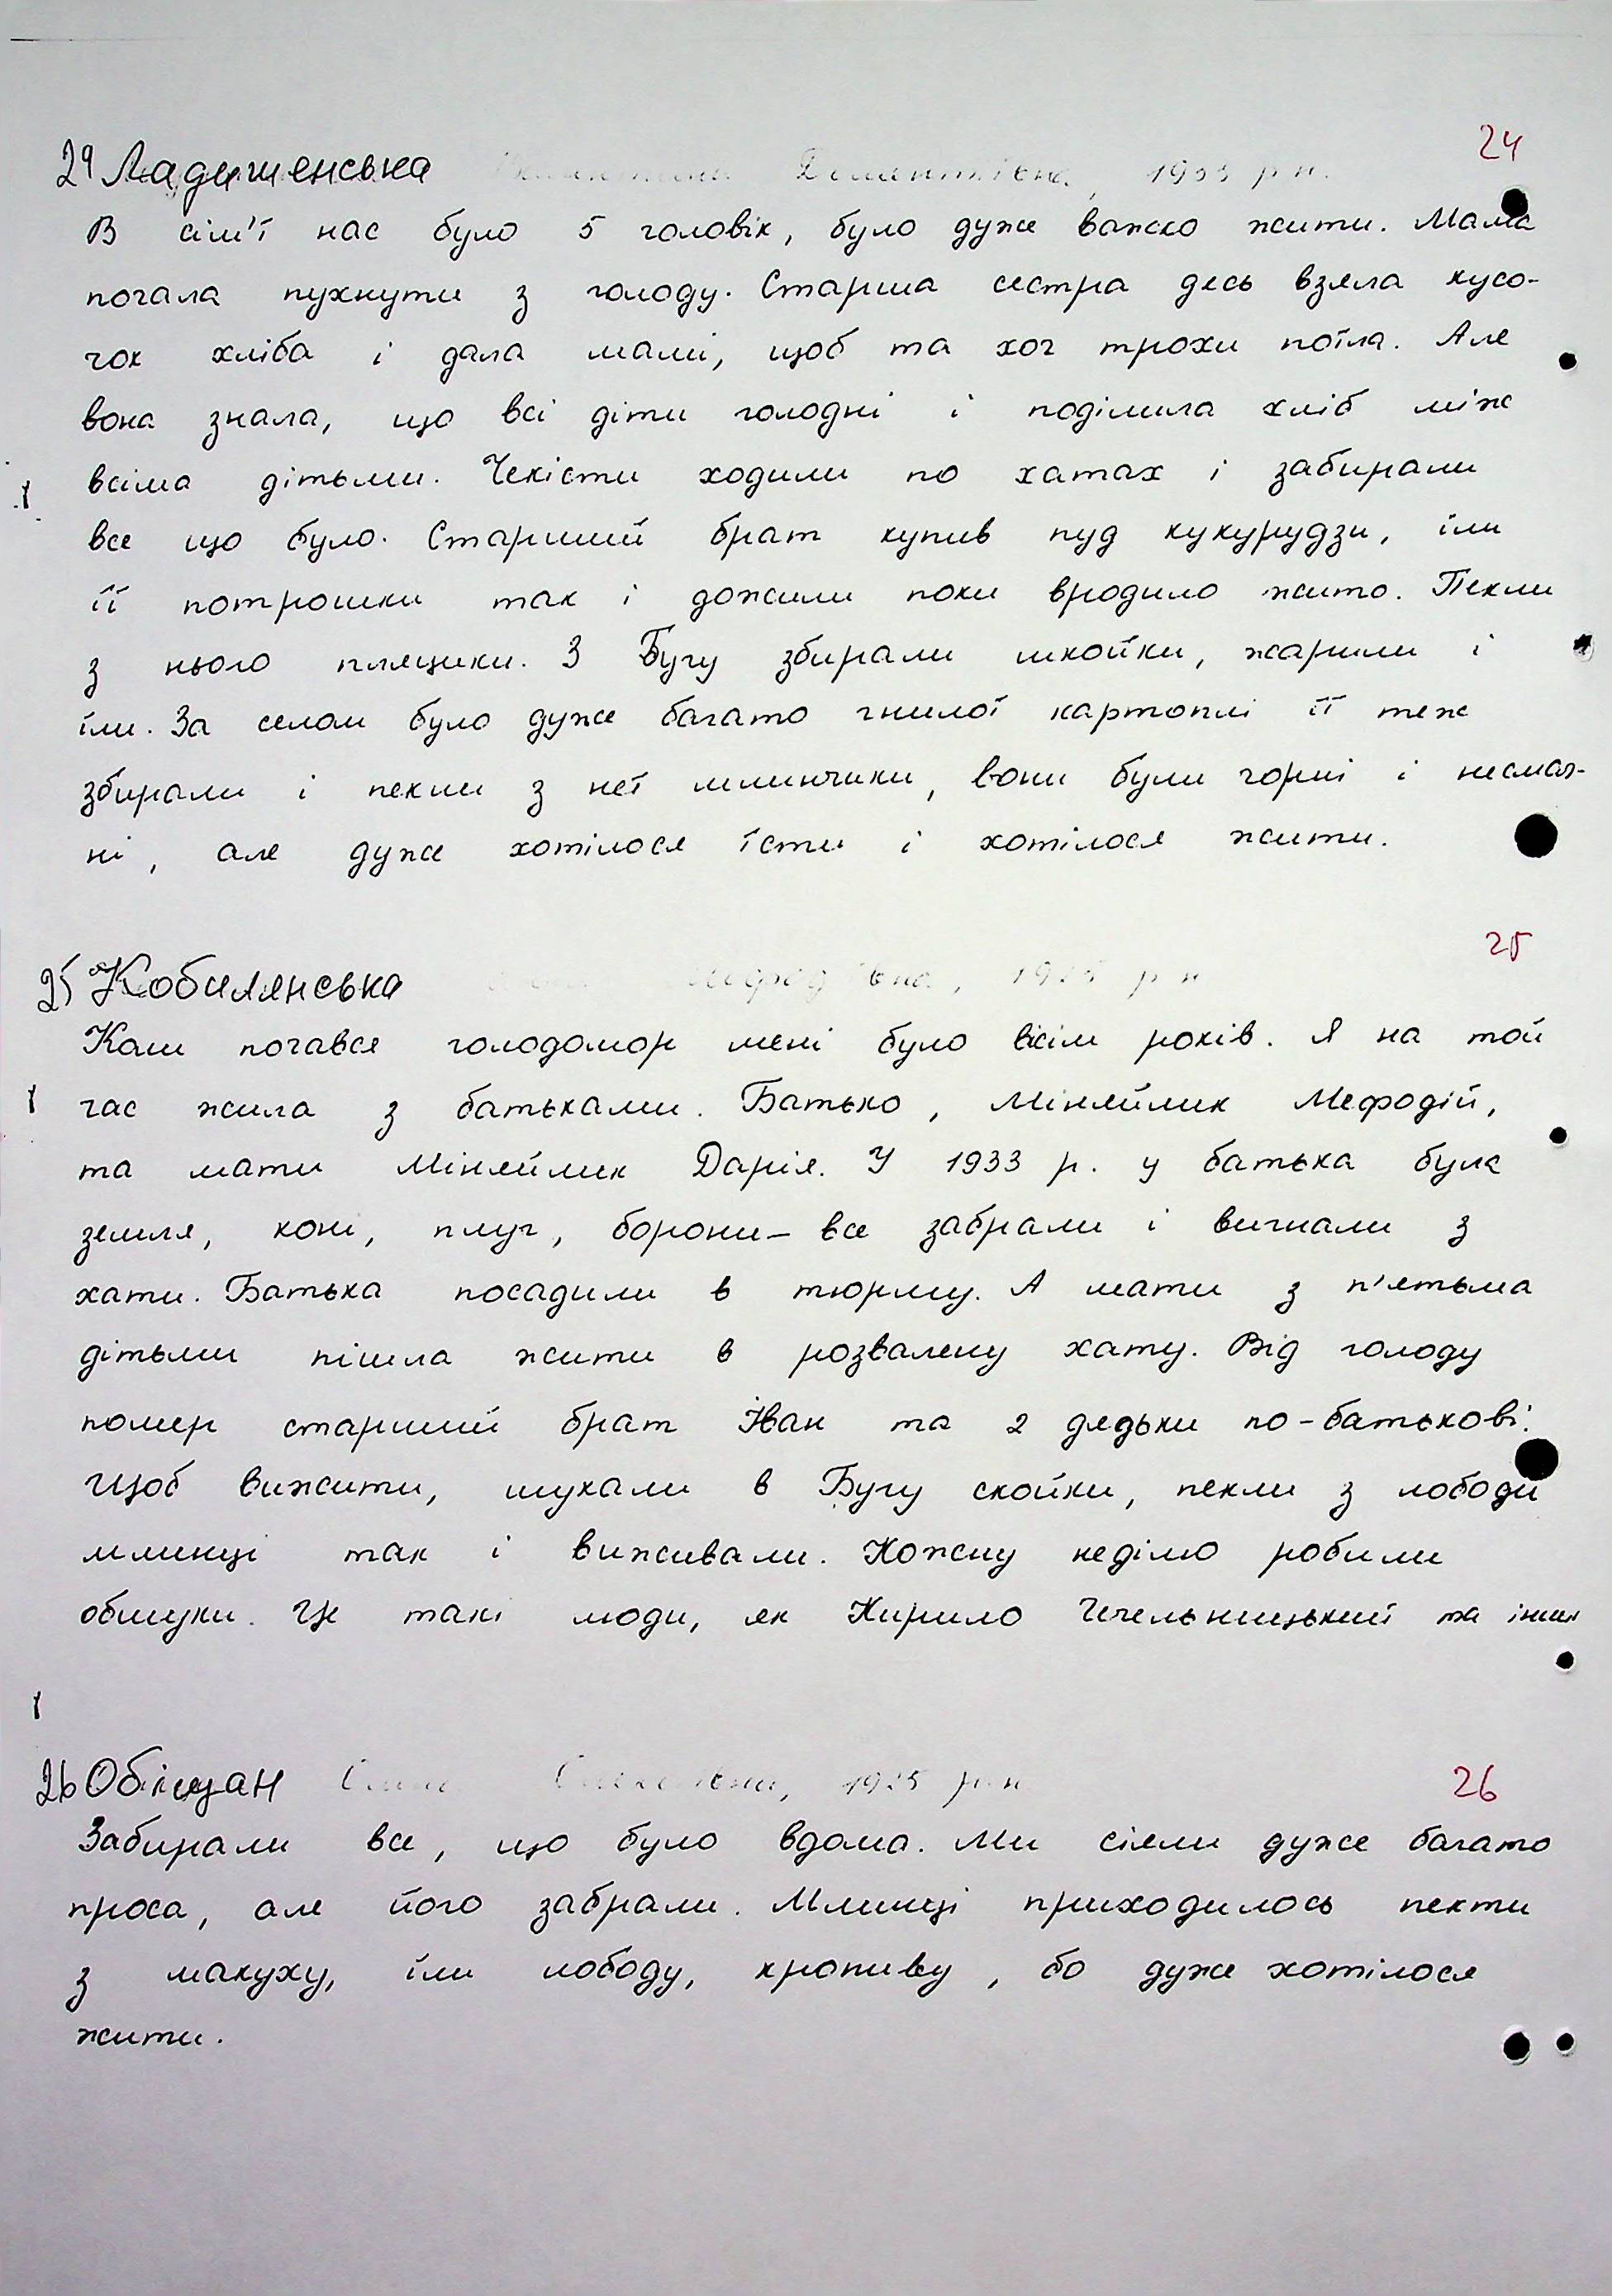 24
24 Ладишенська Дементіївна, 1933 р н.
В сім'ї нас було 5 головік, було дуже важко жити. Мама
почала пухнути з голоду. Старша сестра десь взяла кусо-
чок хліба і дала мамі, щоб та хоч трохи поїла. Але
вона знала, що всі діти голодні і поділила хліб між
всіма дітьми. Чекісти ходили по хатах і забирали
все що було. Старший брат купив пуд кукурудзи, їли
її потрошки так і дожили поки вродило жито. Пекли
з нього пляцики. З Бугу збирали шкойки, жарили і
їли. За селом було дуже багато гнилої картоплі її теж
збирали і пекли з неї млинчики, вони були чорні і несмач-
ні, але дуже хотілося їсти і хотілося жити.
25
25 Кобилянська Мефодіївна, 1925 р н
Коли почався голодомор мені було вісім років. Я на той
час жила з батьками. Батько, Міняйлик Мефодій,
та мати Міняйлик Дарія. У 1933 р. у батька була
земля, коні, плуг, борони – все забрали і вигнали з
хати. Батька посадили в тюрму. А мати з п'ятьма
дітьми пішла жити в розвалену хату. Від голоду
помер старший брат Іван та 2 дядьки по-батькові.
Щоб вижити, шукали в Бугу скойки, пекли з лободи
млинці так і виживали. Кожну неділю робили
обшуки. Це такі люди, як Кирило Чечельницький та інши
26
26 Обіщан 1925 р.н
Забирали все, що було вдома. Ми сіяли дуже багато
проса, але його забрали. Млинці приходилось пекти
з макуху, їли лободу, кропиву, бо дуже хотілося
жити.